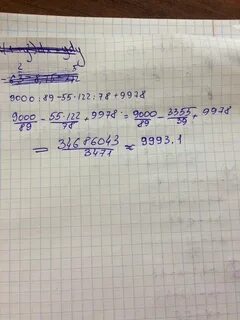 9000 : 89 - 55 · 122 : 78 + 9978
9000/89 - 55·122/78 + 9978 = 9000/89 - 3355/39 + 9978
= 34686043/3471 ≈ 9993.1